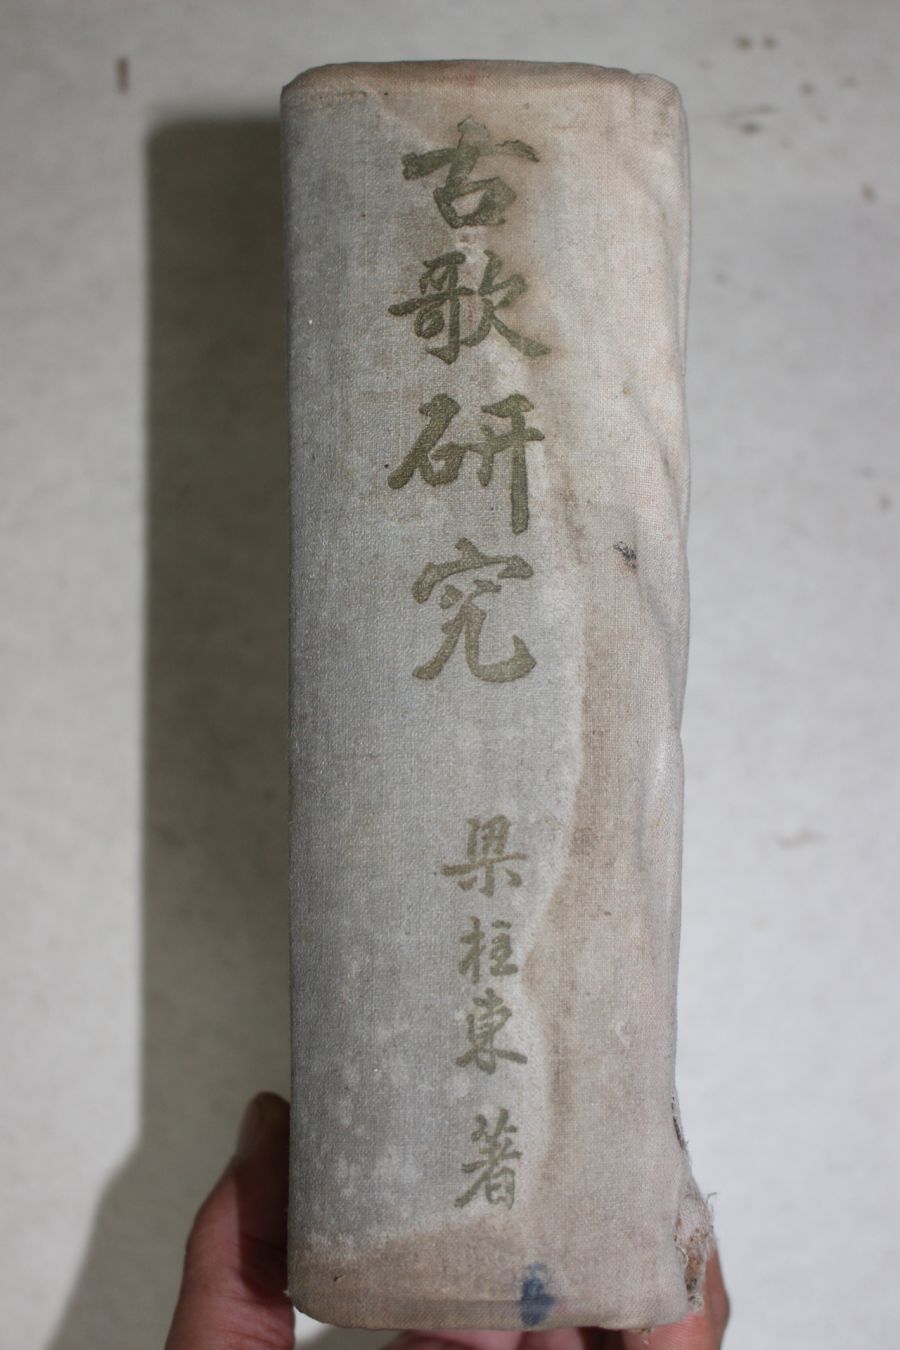 古歌研究
梁柱東 著